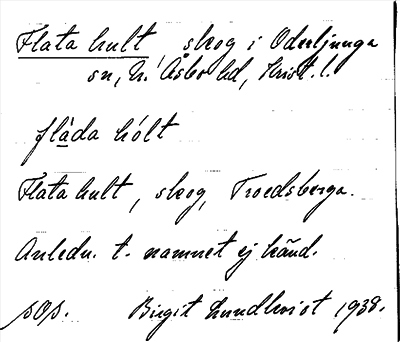 Flata hult, skog i Oderljunga
sn, N. Åsbo hd, Krist. l.
flàda hólt
Flata hult, skog, Troedsberga.
Anledn. t. namnet ej känd.
sOs. Birgit Lundkvist 1938.